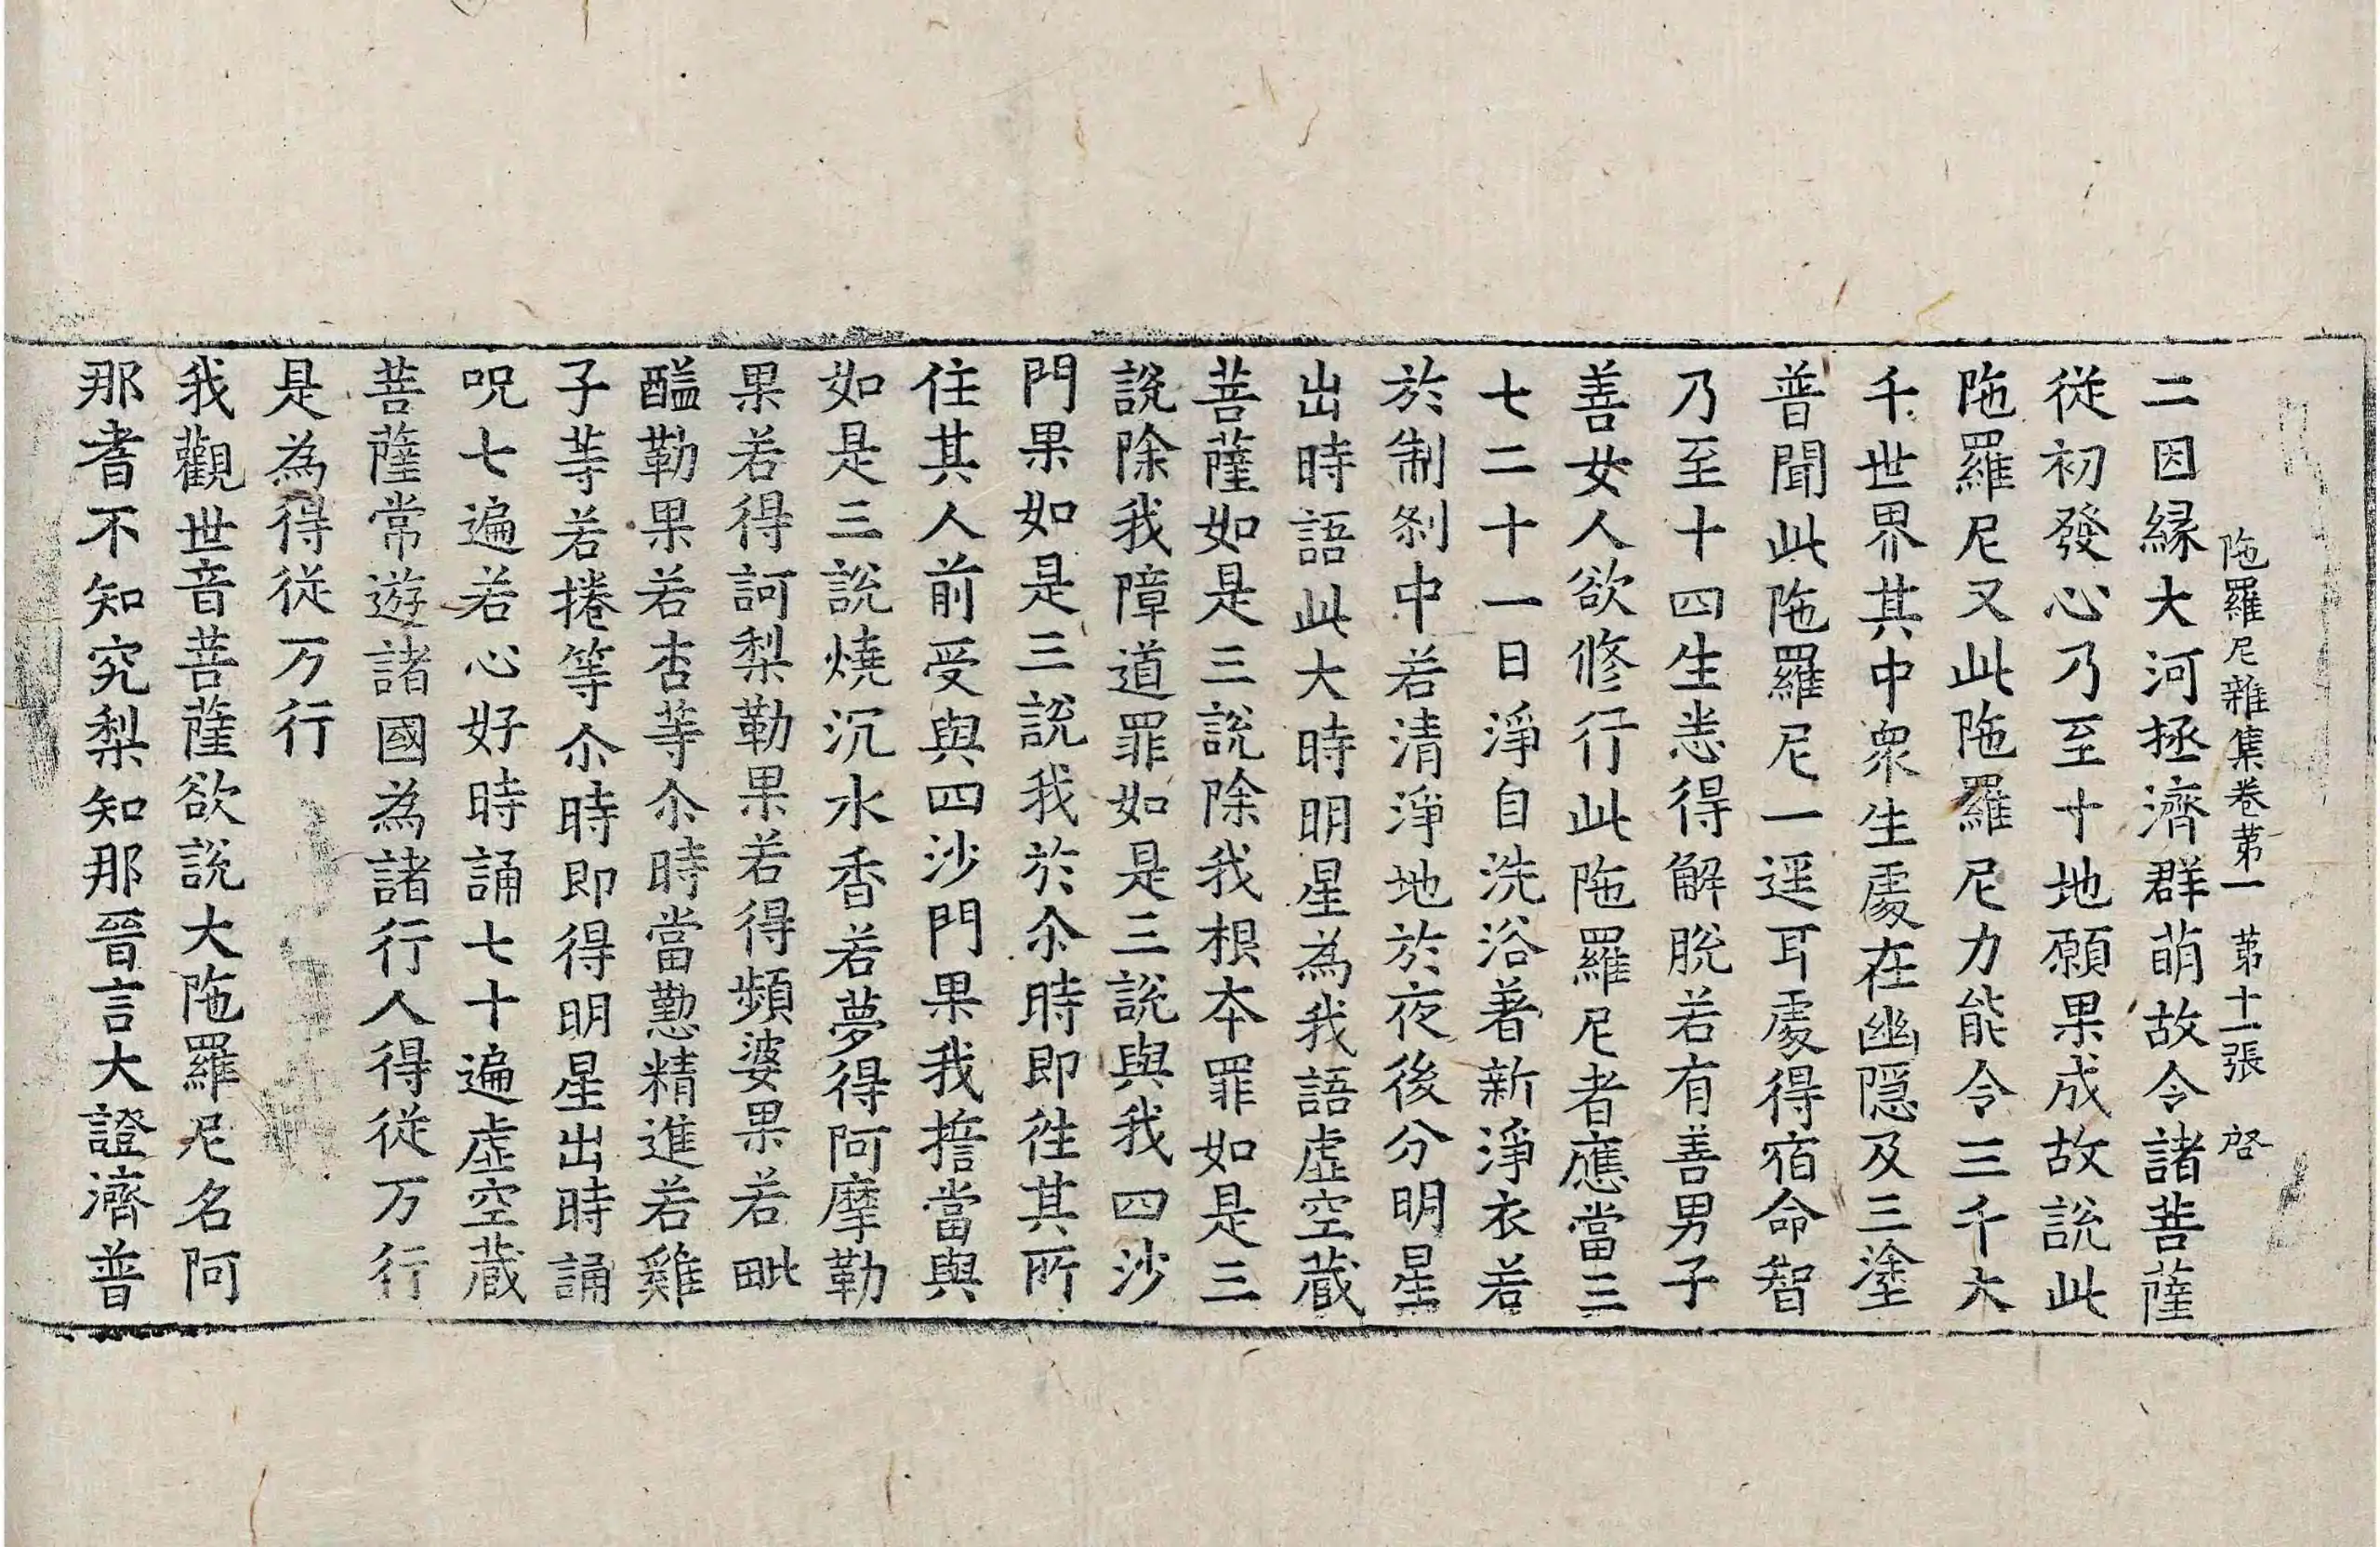 陁羅尼雜集卷苐一 苐十一張 啓
二因縁大河拯濟群萌故令諸菩薩
從初發心乃至十地願果成故說此
陁羅尼又此陁羅尼力能令三千大
千世界其中衆生處在幽隱及三塗
普聞此陁羅尼一逕耳處得宿命智
乃至十四生悉得解脫若有善男子
善女人欲修行此陁羅尼者應當三
七二十一日淨自洗浴著新淨衣若
於制剎中若清淨地於夜後分明星
出時語此大時明星為我語虛空蔵
菩薩如是三說除我根本罪如是三
說除我障道罪如是三說與我四沙
門果如是三說我於尒時即徃其所
住其人前受與四沙門果我擔當與
如是三說燒沉水香若夢得阿摩勒
果若得訶梨勒果若得頻婆果若毗
醯勒果若杏等尒時當懃精進若雞
子等若捲等尒時即得明星出時誦
呪七遍若心好時誦七十遍虛空蔵
菩薩常遊諸國為諸行人得從万行
是為得從万行
我觀世音菩薩欲說大陁羅尼名阿
那耆不知究梨知那晉言大證濟普